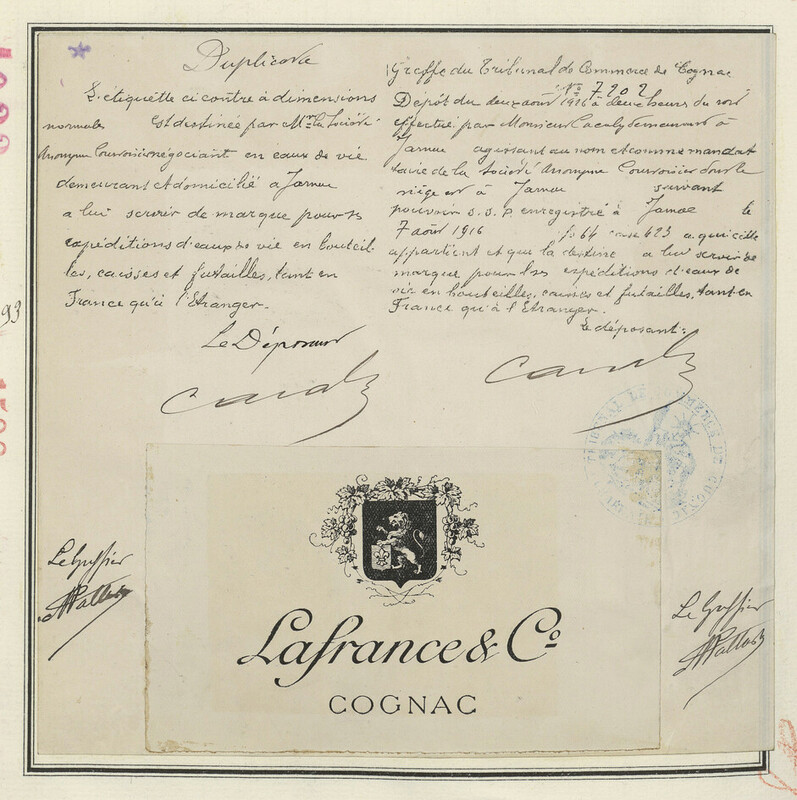 Duplicata
L'étiquette ci contre à dimensions
normales est destinée par Mrs la Société
Anonyme Courvoisier négociant en eaux de vie
demeurant et domicilié à Jarnac
a lui servir de marque pour ses
expéditions d'eaux de vie en bouteil-
les, caisses et futailles, tant en
France qu'à l'Etranger.
Le Déposant
Greffe du Tribunal de Commerce de Cognac
No 7202
Dépôt du deux août 1916 à deux heures du soir
effectué par Monsieur demeurant à
Jarnac agissant au nom et comme mandat
taire de la Société Anonyme Courvoisier dont le
siège est à Jarnac suivant
pouvoir s.s.p enregistré à Jarnac le
7 août 1916 fo 64 case 623 a qui elle
appartient et que la destine a lui servir de
marque pour ses expéditions d'eaux de
vie en bouteilles, caisses et futailles, tant en
France qu'à l'Etranger.
Le déposant:
TRIBUNAL DE COMMERCE DE COGNAC
93
Le Greffier
Lafrance & Co
COGNAC
Le Greffier